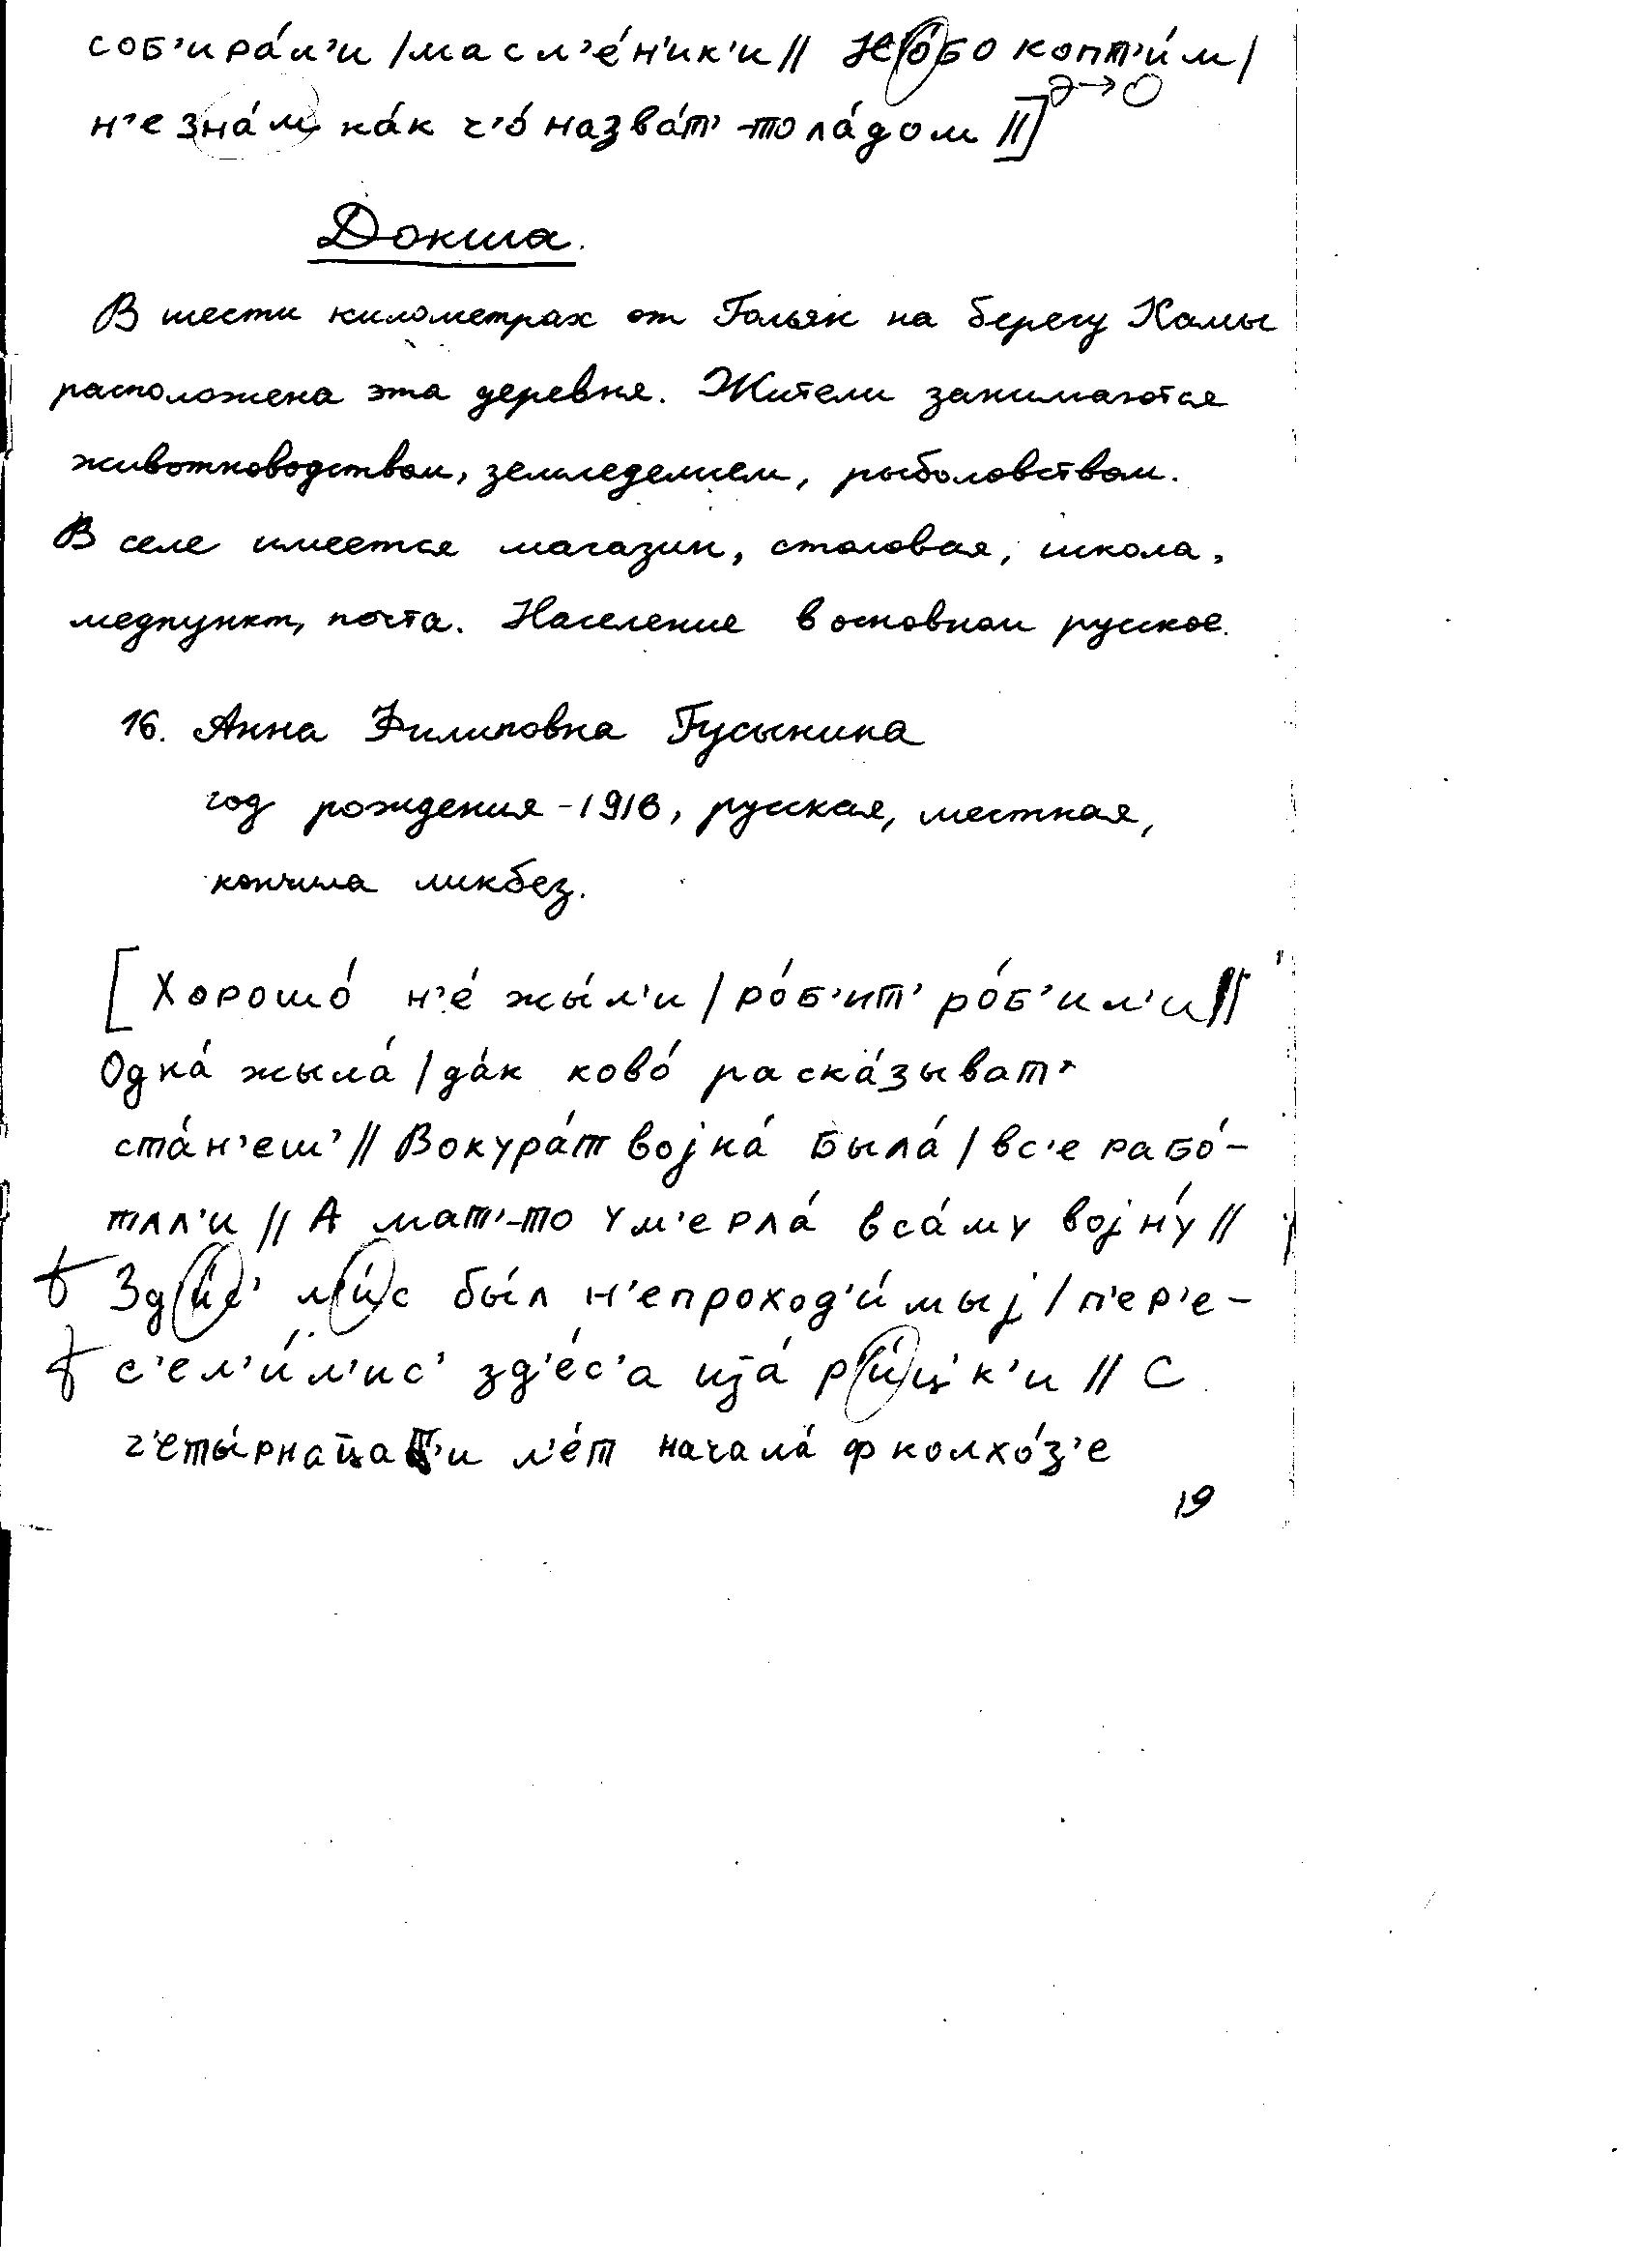 соб'ира́л'и /масл'е́н'ик'и // Н'о́бо копт'и́м /
э→о
н'е зна́м ка́к ч'о́ назва́т'-то ла́дом //]
Докша.
В шести километрах от Гольян на берегу Камы
расположена эта деревня. Жители занимаются
животноводством, земледелием, рыболовством.
В селе имеется магазин, столовая, школа,
медпункт, почта. Население в основном русское.
16. Анна Филиповна Гусынина
год рождения - 1916, русская, местная,
кончила ликбез.
[Хорошо́ н'е́ жы́л'и / ро́б'ит' ро́б'ил'и //
Одна́ жыла́ / да́к ково́ раска́зыват'
ста́н'еш' // Вокура́т војна́ была́ / вс'е рабо́-
тал'и // А мат'-то ум'ерла́ в са́му војну́ //
Зд'и́с' л'и́с бы́л н'епроход'и́мыј / п'ер'е-
с'ел'и́л'ис' зд'е́с'а р'и́ц'к'и // С
ч'еты́рнацат'и л'е́т начала́ ф колхо́з'е
19